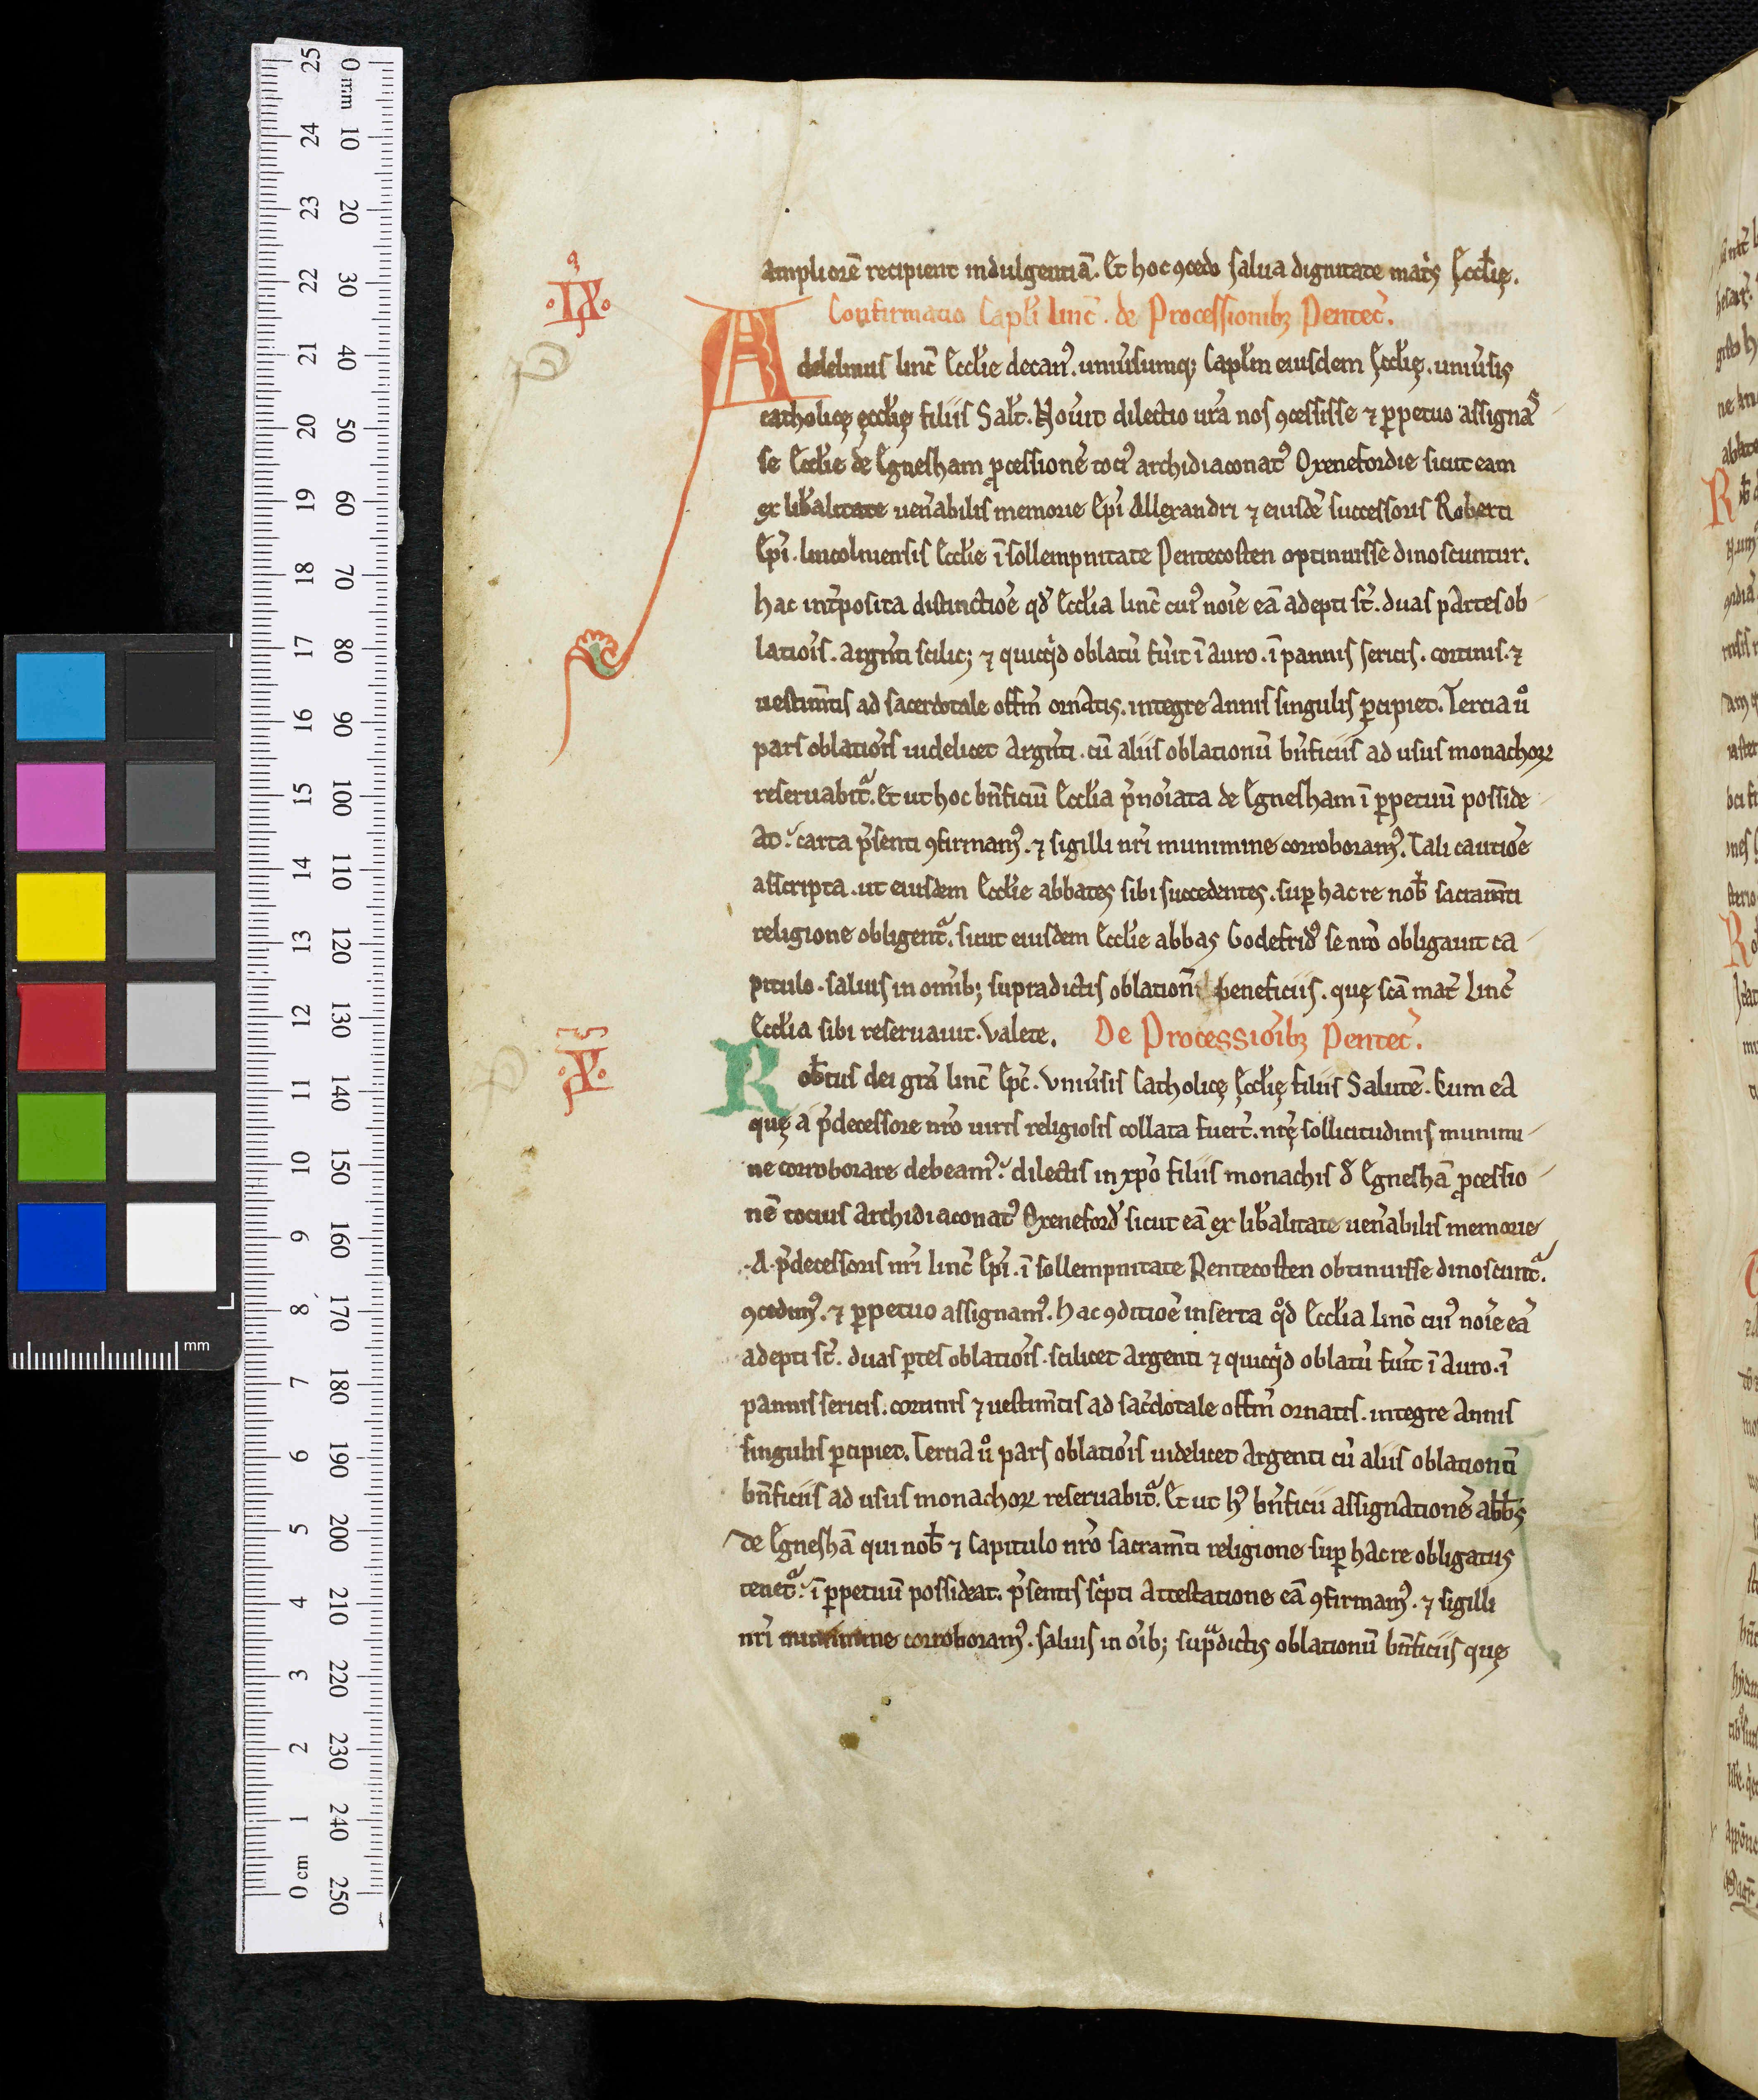 ampliorē recipient indulgentiā. Et hoc ꝯcedo salua dignitate matͥs Ęccl̓ię.
.IX.
Confirmatio Capl̓i Linc̄. de Processionibꝫ Pentec̓.
Adelelmus linc̄ Eccl̓ie decan᾿. uniu̓sumq; Capl̓m eiusdem Ęccl̓ię. uniu̓sis
catholicę ęccl̓ię filiis Sal̓t. Nou̓it dilectio ur̄a nos ꝯcessisse ⁊ ꝑpetuo assigna
se Eccl̓ie de Egnesham ꝓcessionē toci᾿ archidiaconat᾿ Oxenefordie sicut eam
ex lib̓alitate uen̓abilis memorie Ep̄i Allexandri ⁊ eiusdē successoris Roberti
Ep̄i. lincolniensis Eccl̓ie ī sollempnitate Pentecosten optinuisse dinoscuntur.
hac int̓posita distinctiōe qd̓ Eccl̓ia linc̄ cui᾿ noīe eā adepti st̄. duas partes ob
latiōis. argn̄ti scilic; ⁊ quicqͥd oblatū fu̓it ī auro. ī pannis sericis. cortinis. ⁊
uestim̄tis ad sacerdotale offm̄ ornatis. integre annis singulis ꝑcipiet. Tercia uͦ
pars oblatiōis uidelicet argn̄ti. cū aliis oblationū bn̄ficiis ad usus monachoꝝ
reseruabitᷓ. Et ut hoc bn̄ficiū Eccl̓ia p̄noīata de Egnesham ī ꝑpetuū posside
at᾿. carta p̄senti ꝯfirmam᾿. ⁊ sigilli nr̄i munimine corroboram᾿. Tali cautiōe
asscripta. ut eiusdem Eccl̓ie abbates sibi succedentes. suꝑ hac re nob̄ sacram̄ti
religione obligentᷓ. sicut eiusdem Eccl̓ie abbas Godefrid᾿ se nr̄o obligauit ca
pitulo. saluis in omīb; supradictis oblationū beneficiis. quę scā mat̓ Linc̄
Eccl̓ia sibi reseruauit. Valete. De Processiōibꝫ Pentec̓.
.X.
Rob̄tus dei grā linc̄ Ep̄c. Vniu̓sis Catholicę Ęccl̓ię filiis Salutē. Cum ea
quę a p̄decessore nr̄o uiris religiosis collata fuer̄t. nr̄ę sollicitudinis munimi
ne corroborare debeam᾿. dilectis in xp̄o filiis monachis d̓ Egneshā ꝓcessio
nē tocius archidiaconat᾿ Oxeneford̓ sicut eā ex lib̓alitate uen̓abilis memorie
.A. p̄decessoris nr̄i linc̄ Ep̄i. ī sollempnitate Pentecosten obtinuisse dinoscuntᷓ.
ꝯcedim᾿. ⁊ ꝑpetuo assignam᾿. hac ꝯditiōe inserta qͦd Eccl̓ia Linc̄ cui᾿ noīe eā
adepti st̄. duas ꝑtes oblatiōis. scilicet argenti ⁊ quicqͥd oblatū fu̓it ī auro. ī
pannis sericis. cortinis ⁊ uestim̄tis ad sac̓dotale offm̄ ornatis. integre annis
singulis ꝑcipiet. Tercia uͦ pars oblatiōis uidelicet argenti cū aliis oblationū
bn̄ficiis ad usus monachoꝝ reseruabitᷓ. Et ut h᾿ bn̄ficii assignationē abb̄s
de Egneshā qui nob̄ ⁊ Capitulo nr̄o sacram̄ti religione suꝑ hac re obligatus
tenetᷓ. ī ꝑpetuū possideat. p̄sentis scͥpti attestatione eā ꝯfirmam᾿. ⁊ sigilli
nr̄i munimine corroboram᾿. saluis in oīb; supᷓdictis oblationū bn̄ficiis quę
0 mm 10 20 30 40 50 60 70 80 90 100 110 120 130 140 150 160 170 180 190 200 210 220 230 240 250
25 24 23 22 21 20 19 18 17 16 15 14 13 12 11 10 9 8 7 6 5 4 3 2 1 0 cm
mm